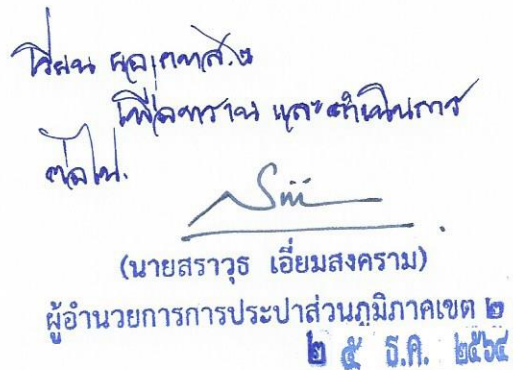 เรียน ผอ.กทส.๒
เพื่อทราบ และดำเนินการ
ต่อไป.
(นายสราวุธ เอี่ยมสงคราม)
ผู้อำนวยการการประปาส่วนภูมิภาคเขต ๒
๒ ๕ ธ.ค. ๒๕๖๔